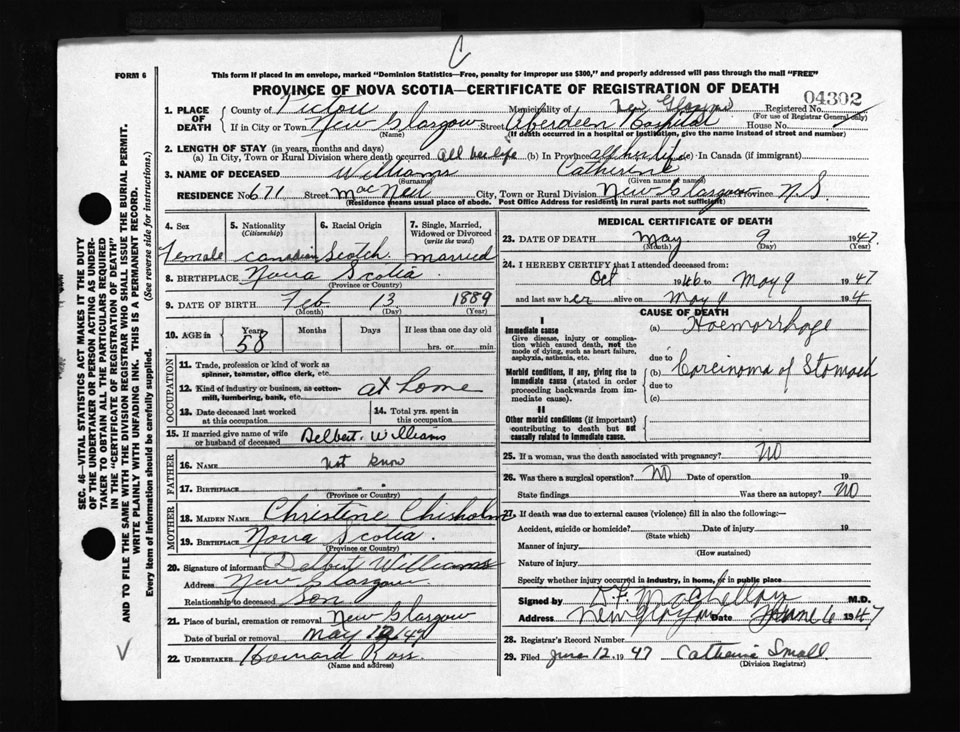 C
FORM 6
This form if placed in an envelope, marked "Dominion Statistics—Free, penalty for improper use $300," and properly addressed will pass through the mail "FREE"
PROVINCE OF NOVA SCOTIA—CERTIFICATE OF REGISTRATION OF DEATH
04302
1. PLACE OF DEATH County of Pictou Municipality of New Glasgow Registered No.
(For use of Registrar General only)
If in City or Town New Glasgow Street Aberdeen Hospital House No.
(Name) (If death occurred in a hospital or institution, give the name instead of street and number)
2. LENGTH OF STAY (in years, months and days)
(a) In City, Town or Rural Division where death occurred All her life (b) In Province all her life (c) In Canada (if immigrant)
3. NAME OF DECEASED Williams Catherine
(Surname) (Given name or names)
RESIDENCE No 671 Street MacNeil City, Town or Rural Division New Glasgow Province N.S.
(Residence means usual place of abode. Post Office Address for residents in rural parts not sufficient)
4. Sex 5. Nationality (Citizenship) 6. Racial Origin 7. Single, Married, Widowed or Divorced (write the word)
Female Canadian Scotch married
8. BIRTHPLACE Nova Scotia
(Province or Country)
9. DATE OF BIRTH Feb 13 1889
(Month) (Day) (Year)
10. AGE in Years Months Days If less than one day old
58 hrs. or min.
OCCUPATION
11. Trade, profession or kind of work as spinner, teamster, office clerk, etc.
12. Kind of industry or business, as cotton-mill, lumbering, bank, etc. at home
13. Date deceased last worked at this occupation 14. Total yrs. spent in this occupation
15. If married give name of wife or husband of deceased Delbert Williams
FATHER
16. Name not know
17. Birthplace " "
(Province or Country)
MOTHER
18. MAIDEN NAME Christene Chisholm
19. BIRTHPLACE Nova Scotia
(Province or Country)
20. Signature of informant Delbert Williams
Address New Glasgow
Relationship to deceased Son
21. Place of burial, cremation or removal New Glasgow
Date of burial or removal May 12/47
22. UNDERTAKER Howard Ross
(Name and address)
MEDICAL CERTIFICATE OF DEATH
23. DATE OF DEATH May 9 1947
(Month) (Day) (Year)
24. I HEREBY CERTIFY that I attended deceased from:
Oct 1946 to May 9 1947
and last saw her alive on May 9 194
CAUSE OF DEATH
I
Immediate cause
Give disease, injury or complication which caused death, not the mode of dying, such as heart failure, asphyxia, asthenia, etc.
(a) Haemorrhage
due to
Morbid conditions, if any, giving rise to immediate cause (stated in order proceeding backwards from immediate cause).
(b) Carcinoma of Stomach
due to
(c)
II
Other morbid conditions (if important) contributing to death but not causally related to immediate cause.
25. If a woman, was the death associated with pregnancy? NO
26. Was there a surgical operation? NO Date of operation 19
State findings Was there an autopsy? NO
27. If death was due to external causes (violence) fill in also the following:—
Accident, suicide or homicide? Date of injury 19
(State which)
Manner of injury
(How sustained)
Nature of injury
Specify whether injury occurred in industry, in home, or in public place
Signed by M.D.
Address New Glasgow Date June 6 1947
28. Registrar's Record Number
29. Filed June 12, 1947 Catherine Small
(Division Registrar)
SEC. 46—VITAL STATISTICS ACT MAKES IT THE DUTY OF THE UNDERTAKER OR PERSON ACTING AS UNDERTAKER TO OBTAIN ALL THE PARTICULARS REQUIRED IN THE "CERTIFICATE OF REGISTRATION OF DEATH" AND TO FILE THE SAME WITH THE DIVISION REGISTRAR WHO SHALL ISSUE THE BURIAL PERMIT.
WRITE PLAINLY WITH UNFADING INK. THIS IS A PERMANENT RECORD.
Every item of information should be carefully supplied. (See reverse side for instructions.)